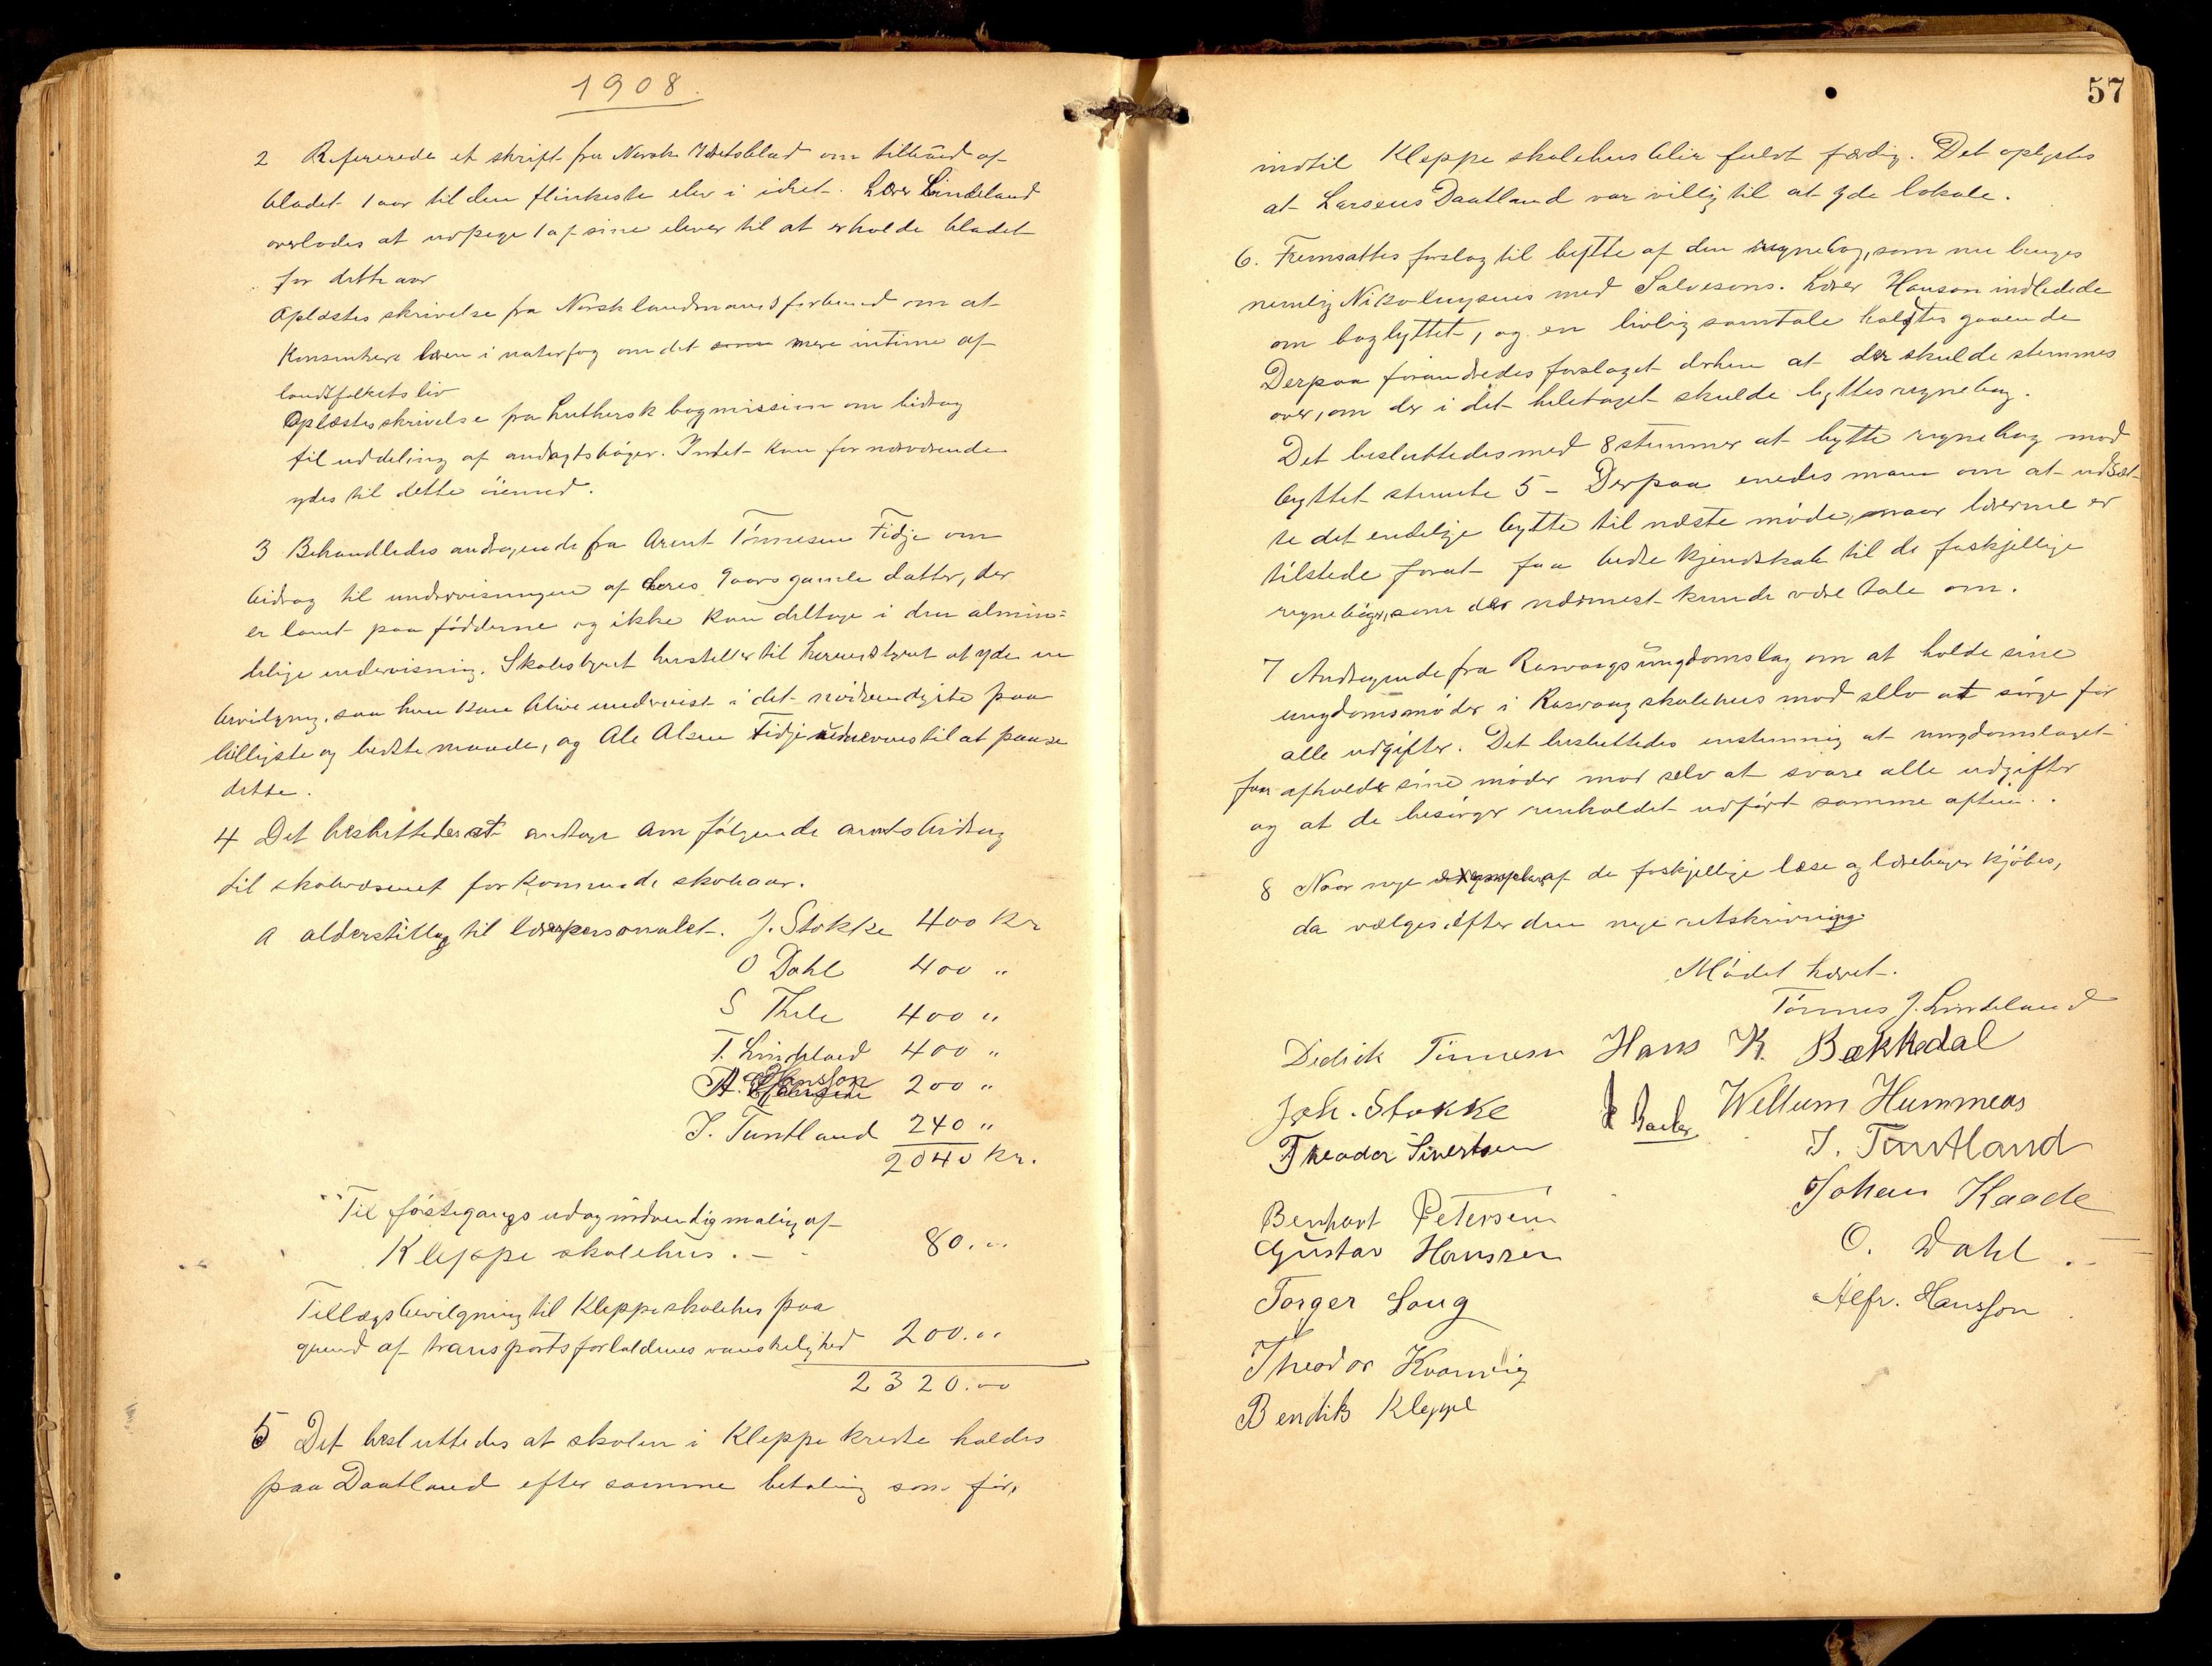 1908.
2 Refererede et skrift fra Norsk Idrætsblad om tilbud af
bladet 1 aar til den flinkeste elev i idræt. Lærer Lindeland
overlodes at udpege 1 af sine elever til at erholde bladet
for dette aar
Oplæstes skrivelse fra Norsk landmandsforbund om at
koncentrere læren i naturfag om det mere intime af
landsfolkets liv
Oplæstes skrivelse fra Luthersk bogmission om bidrag
til uddeling af andagtsbøger. Intet kan for nærværende
ydes til dette øiemed.
3 Behandledes andragende fra Arent Tønnesen Fidje om
bidrag til undervisningen af deres 9 aars gamle datter, der
er lamt paa fødderne og ikke kan deltage i den almin=
delige undervisning. Skolestyret henstiller til herredstyret at yde en
bevilgning, saa hun kan blive undervist i det nødvendigste paa
billigste og bedste maade, og Ole Olsen Fidje udnævnes til at paase
dette.
4 Det besluttedes at andrage om følgende amtsbidrag
til skolevæsenet for kommende skoleaar.
a alderstillæg til lærerpersonalet. J. Stokke 400 Kr
O Dahl 400 "
S Thele 400 "
T. Lindeland 400 "
A. Hansson 200 "
J. Tuntland 240 "
2040 kr.
Til førstegangs ud og indvendig maling af
Kleppe skolehus. — 80. "
Tillægsbevilgning til Kleppe skolehus paa
grund af transportsforholdenes vanskelighed 200. "
2320.00
5 Det besluttedes at skolen i Kleppe kreds holdes
paa Daatland efter samme betaling som før,
57
indtil Kleppe skolehus blir fuldt færdig. Det oplystes
at Larseus Daatland var villig til at yde lokale.
6. Fremsattes forslag til bytte af den regnebog, som nu bruges
nemlig Nikolaysens med Salvesons. Lærer Hanson indledede
om bogbyttet, og en livlig samtale holdtes gaaende
Derpaa forandredes forslaget derhen at der skulde stemmes
over, om der i det heletaget skulde byttes regnebog.
Det besluttedes med 8 stemmer at bytte regnebog mod
byttet stemte 5 – Derpaa enedes man om at udsæt-
te det endelige bytte til næste møde, naar lærerne er
tilstede forat faa bedre kjendskab til de forskjellige
regnebøger, som der nærmest kunde være tale om.
7 Andragende fra Rasvaags ungdomslag om at holde sine
ungdomsmøder i Rasvaag skolehus mod selv at sørge for
alle udgifter. Det besluttedes enstemmig at ungdomslaget
faar afholde sine møder mod selv at svare alle udgifter
og at de besørger renholdet udført samme aften.
8 Naar nye af de forskjellige læse og lærebøger kjøbes,
da vælges efter den nye retskrivning
Mødet hævet.
Tønnes J. Lindeland
Didrik Tønnesen Hans K. Bækkedal
Joh. Stokke Wellum Hummeras
Theodor Sivertsen J. Tuntland
Johan Kaade
Bernhart Petersen
Gustav Hanssen O. Dahl
Torger Loug Alfr. Hansson
Theodor Kvanvig
Bendik Kleppe